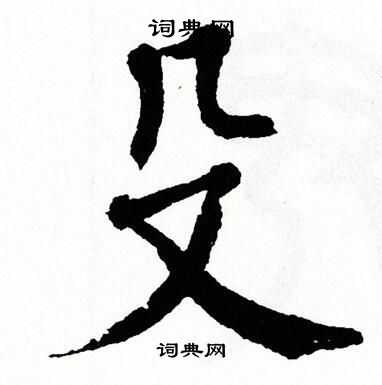 词典网
殳
词典网